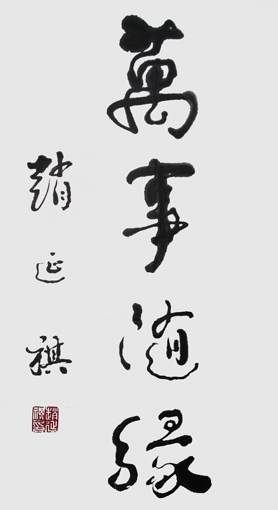 萬事隨緣
趙延祺